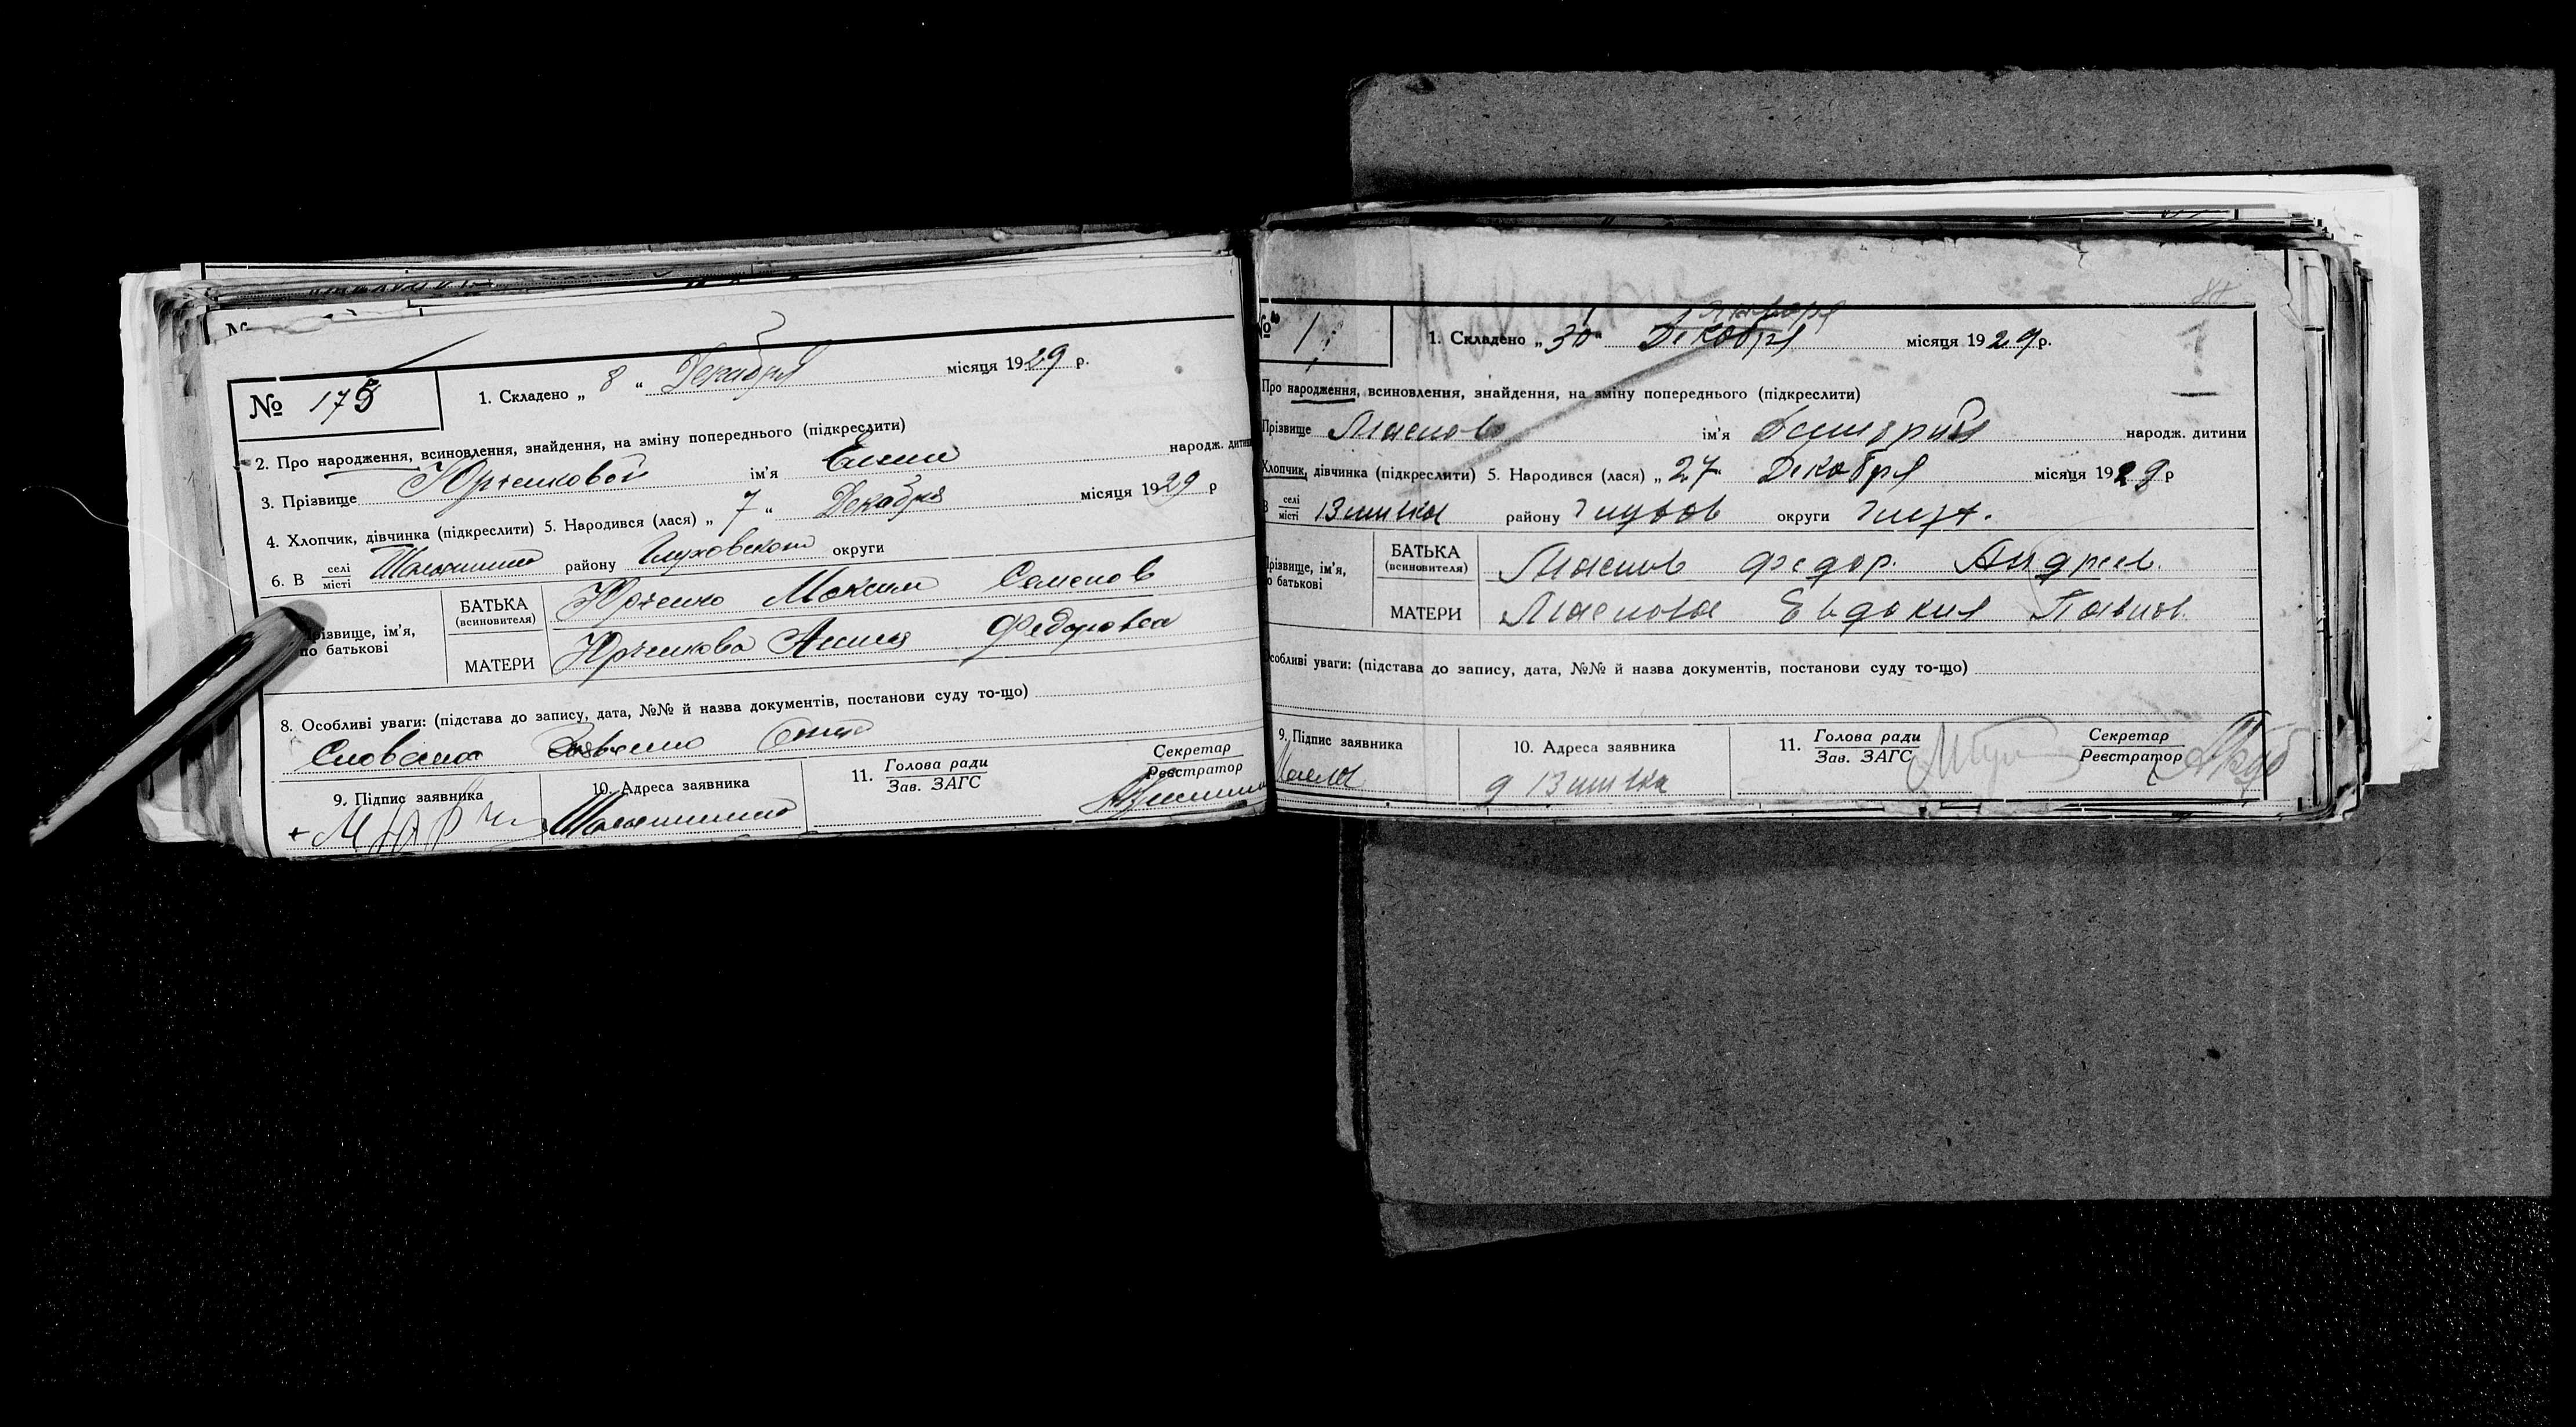 № 175
1. Складено „ 8 “ Декабря місяця 1929 р.
2. Про народження, всиновлення, знайдення, на зміну попереднього (підкреслити)
3. Прізвище Юрченковой ім'я народж. дитини
4. Хлопчик, дівчинка (підкреслити) 5. Народився (лася) „ 7 “ Декабря місяця 1929 р
6. В селі місті району Глуховского округи
Прізвище, ім'я, по батькові
БАТЬКА (всиновителя) Юрченко Максим Семенов
МАТЕРИ Юрченкова Анна Федоровна
8. Особливі уваги: (підстава до запису, дата, №№ й назва документів, постанови суду то-що)
Словесна
9. Підпис заявника 10. Адреса заявника 11. Голова ради Зав. ЗАГС Секретар Реєстратор
№ 1
1. Складено „ 30 “ Декабря Января місяця 1929 р.
Про народження, всиновлення, знайдення, на зміну попереднього (підкреслити)
Прізвище Маслов ім'я Дмитрий народж. дитини
Хлопчик, дівчинка (підкреслити) 5. Народився (лася) „ 27 “ Декабря місяця 1929 р
В селі місті району Глухов округи Глух.
Прізвище, ім'я, по батькові
БАТЬКА (всиновителя) Маслов Федор. Андреев.
МАТЕРИ Маслова Евдокия Павлов.
Особливі уваги: (підстава до запису, дата, №№ й назва документів, постанови суду то-що)
9. Підпис заявника 10. Адреса заявника 11. Голова ради Зав. ЗАГС Секретар Реєстратор